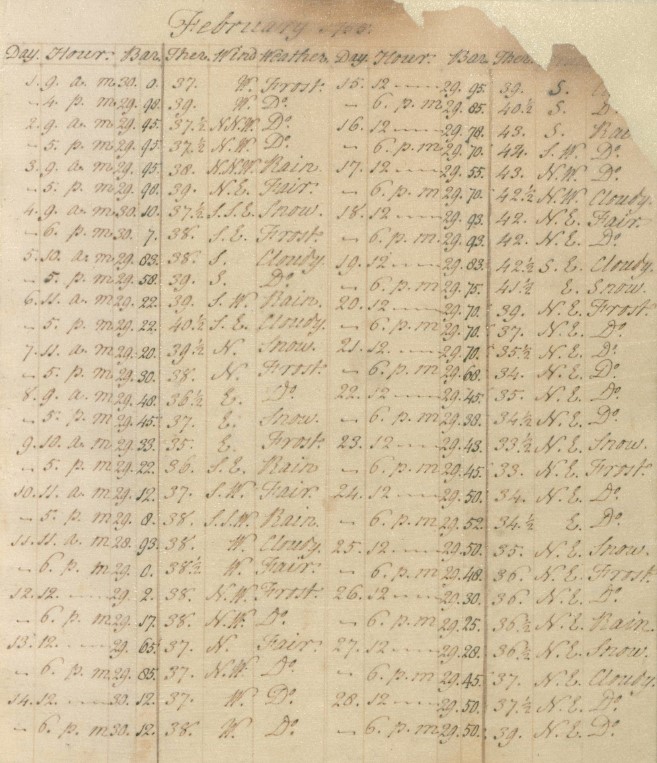 February
Day. Hour. Bar. Ther. Wind Weather. Day. Hour. Bar. Ther.
1. 9. a. m 30. 0. 37. W. Frost. 15. 12 29. 95. 39. S.
– 4. p. m 29. 98. 39. W. Do. – 6. p. m 29. 85. 40½ S. D
2. 9. a. m 29. 95. 37.½ N.N.W. Do. 16. 12 29. 78. 43. S. Rai
– 5. p. m 29. 95. 37.½ N.W. Do. – 6. p. m 29. 70. 44. S.W. Do.
3. 9. a. m 29. 95. 38. N.N.W. Rain. 17. 12 29. 55. 43. N.W. Do.
– 5. p. m 29. 90. 39. N.E. Fair. – 6. p. m 29. 70. 42½ N.W. Cloudy.
4. 9. a. m 30. 10. 37.½ S.S.E. Snow. 18. 12 29. 93. 42. N.E. Fair.
– 6. p. m 30. 7. 38. S.E. Frost. – 6. p. m 29. 93. 42. N.E. Do.
5. 10. a. m 29. 83. 38. S. Cloudy. 19. 12 29. 83. 42½ S.E. Cloudy.
– 5. p. m 29. 58. 39. S. Do. – 6. p. m 29. 75. 41½ E. Snow.
6. 11. a. m 29. 22. 39. S.W. Rain. 20. 12 29. 70. 39. N.E. Frost.
– 5. p. m 29. 22. 40½ S.E. Cloudy. – 6. p. m 29. 70. 37. N.E. Do.
7. 11. a. m 29. 20. 39½ N. Snow. 21. 12 29. 70. 35½ N.E. Do.
– 5. p. m 29. 30. 38. N. Frost. – 6. p. m 29. 68. 34. N.E. Do.
8. 9. a. m 29. 48. 36½ E. Do. 22. 12 29. 45. 35. N.E. Do.
– 5. p. m 29. 45. 37. E. Snow. – 6. p. m 29. 38. 34½ N.E. Do.
9. 10. a. m 29. 33. 35. E. Frost. 23. 12 29. 43. 33½ N.E. Snow.
– 5. p. m 29. 22. 36. S.E. Rain – 6. p. m 29. 45. 33. N.E. Frost.
10. 11. a. m 29. 12. 37. S.W. Fair. 24. 12 29. 50. 34. N.E. Do.
– 5. p. m 29. 8. 38. S.S.W. Rain. – 6. p. m 29. 52. 34½ E. Do.
11. 11. a. m 28. 93. 38. W. Cloudy. 25. 12 29. 50. 35. N.E. Snow.
– 6. p. m 29. 0. 38½ W. Fair. – 6. p. m 29. 48. 36. N.E. Frost.
12. 12. 29. 2. 38. N.W. Frost. 26. 12 29. 30. 36. N.E. Do.
– 6. p. m 29. 17. 38. N.W. Do. – 6. p. m 29. 25. 36½ N.E. Rain.
13. 12. 29. 65. 37. N. Fair. 27. 12 29. 28. 36½ N.E. Snow.
– 6. p. m 29. 85. 37. N.W. Do. – 6. p. m 29. 45. 37. N.E. Cloudy.
14. 12 30. 12. 37. W. Do. 28. 12 29. 50. 37½ N.E. Do.
– 6. p. m 30. 12. 38. W. Do. – 6. p. m 29. 50. 39. N.E. Do.